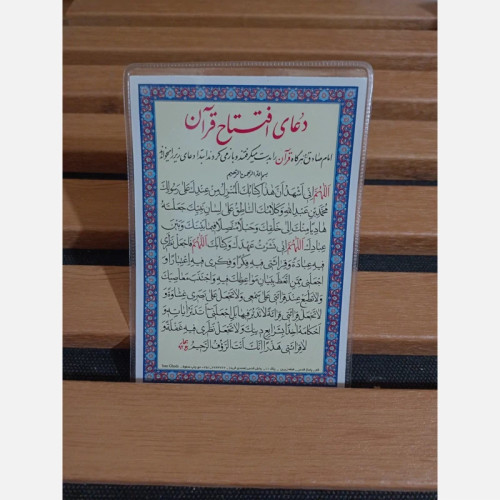 دعای افتتاح قرآن
امام صادق هرگاه قرآن را بدست میگرفتند و باز می کردند ابتدا دعای زیر را میخواندند
بسم الله الرحمن الرحیم
اَللّهُمَّ اِنّی اَشْهَدُ اَنَّ هذا کِتابُکَ الْمُنْزَلُ مِنْ عِنْدِکَ عَلی رَسُولِکَ
مُحَمَّدِ بْنِ عَبْدِاللهِ وَکَلامُکَ النّاطِقُ عَلی لِسانِ نَبِیِّکَ جَعَلْتَهُ
هادِیاً مِنْکَ اِلی خَلْقِکَ وَحَبْلاً مُتَّصِلاً فیما بَیْنَکَ وَبَیْنَ
عِبادِکَ اَللّهُمَّ اِنّی نَشَرْتُ عَهْدَکَ وَکِتابَکَ اَللّهُمَّ فَاجْعَلْ نَظَری
فیهِ عِبادَةً وَقِرائَتی فیهِ فِکْراً وَفِکْری فیهِ اعْتِباراً وَ
اجْعَلْنی مِمَّنِ اتَّعَظَ بِبَیانِ مَواعِظِکَ فیهِ وَاجْتَنَبَ مَعاصِیَکَ
وَلا تَطْبَعْ عِنْدَ قِرائَتی عَلی سَمْعی وَلا تَجْعَلْ عَلی بَصَری غِشاوَةً وَ
لا تَجْعَلْ قِرائَتی قِرائَةً لا تَدَبُّرَ فیها بَلِ اجْعَلْنی اَتَدَبَّرُ ایاتِهِ وَ
اَحْکامَهُ اخِذاً بِشَرایِعِ دینِکَ وَلا تَجْعَلْ نَظَری فیهِ غَفْلَةً وَ
لا قِرائَتی هَذَراً اِنَّکَ اَنْتَ الرَّؤُوفُ الرَّحیمُ